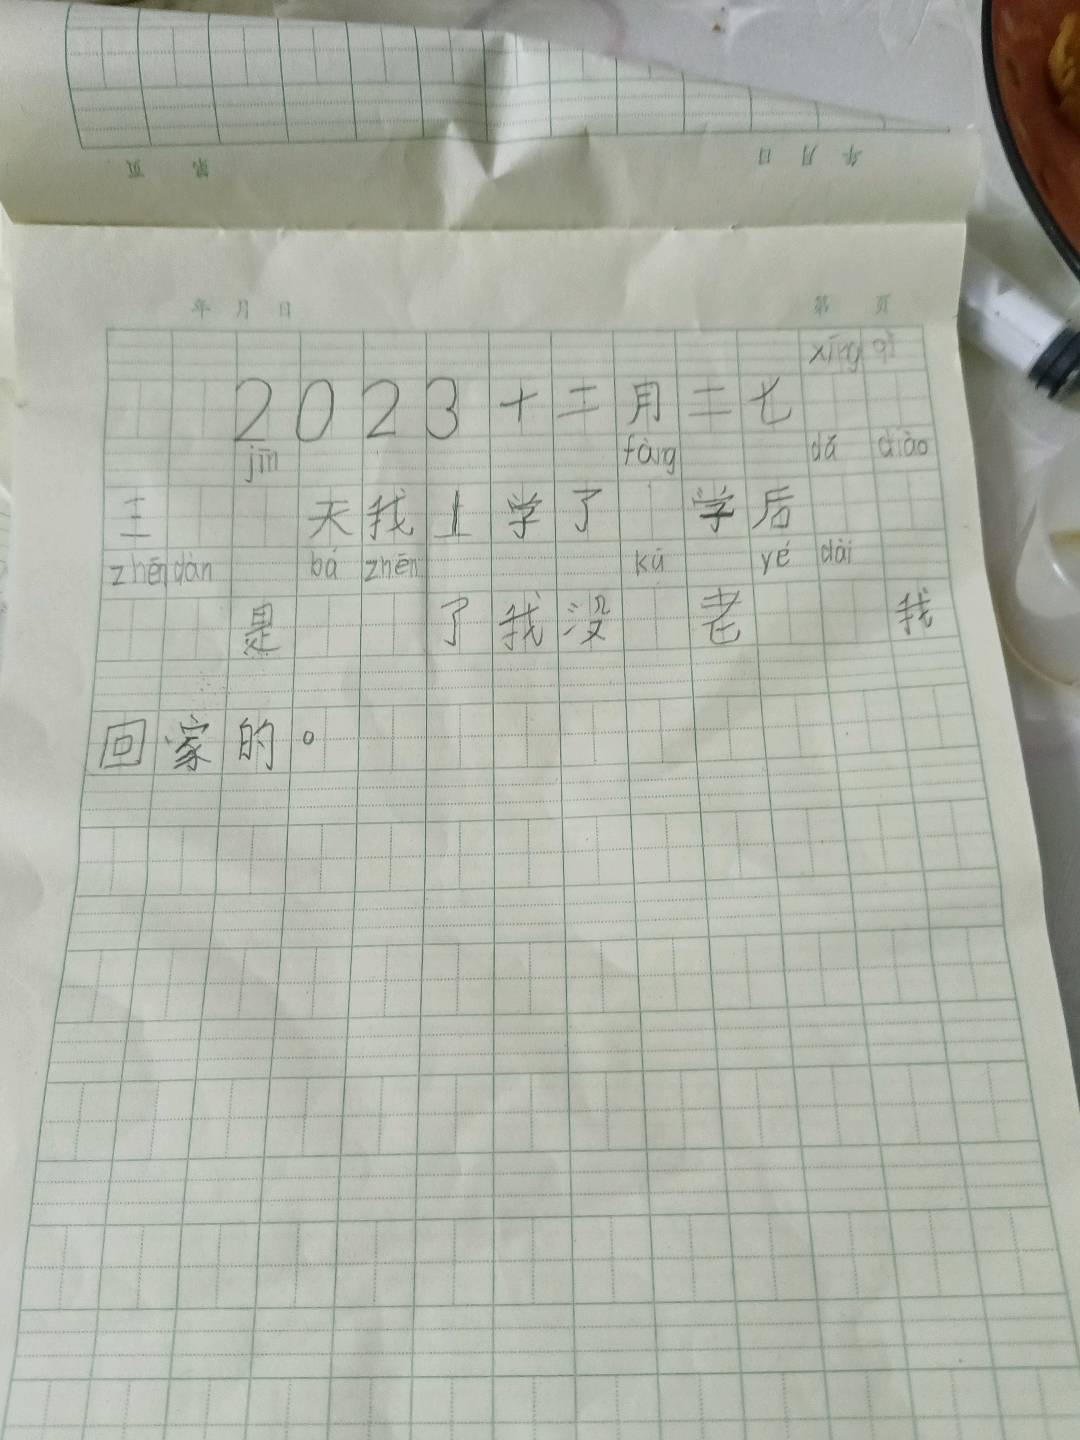 页 第 日 月 年
年 月 日 第 页
xīng qī
2023十二月二七
jīn fàng dǎ diào
三 天我上学了 学后
zhēn dàn bá zhēn kū yé dài
是 了我没 老 我
回家的。